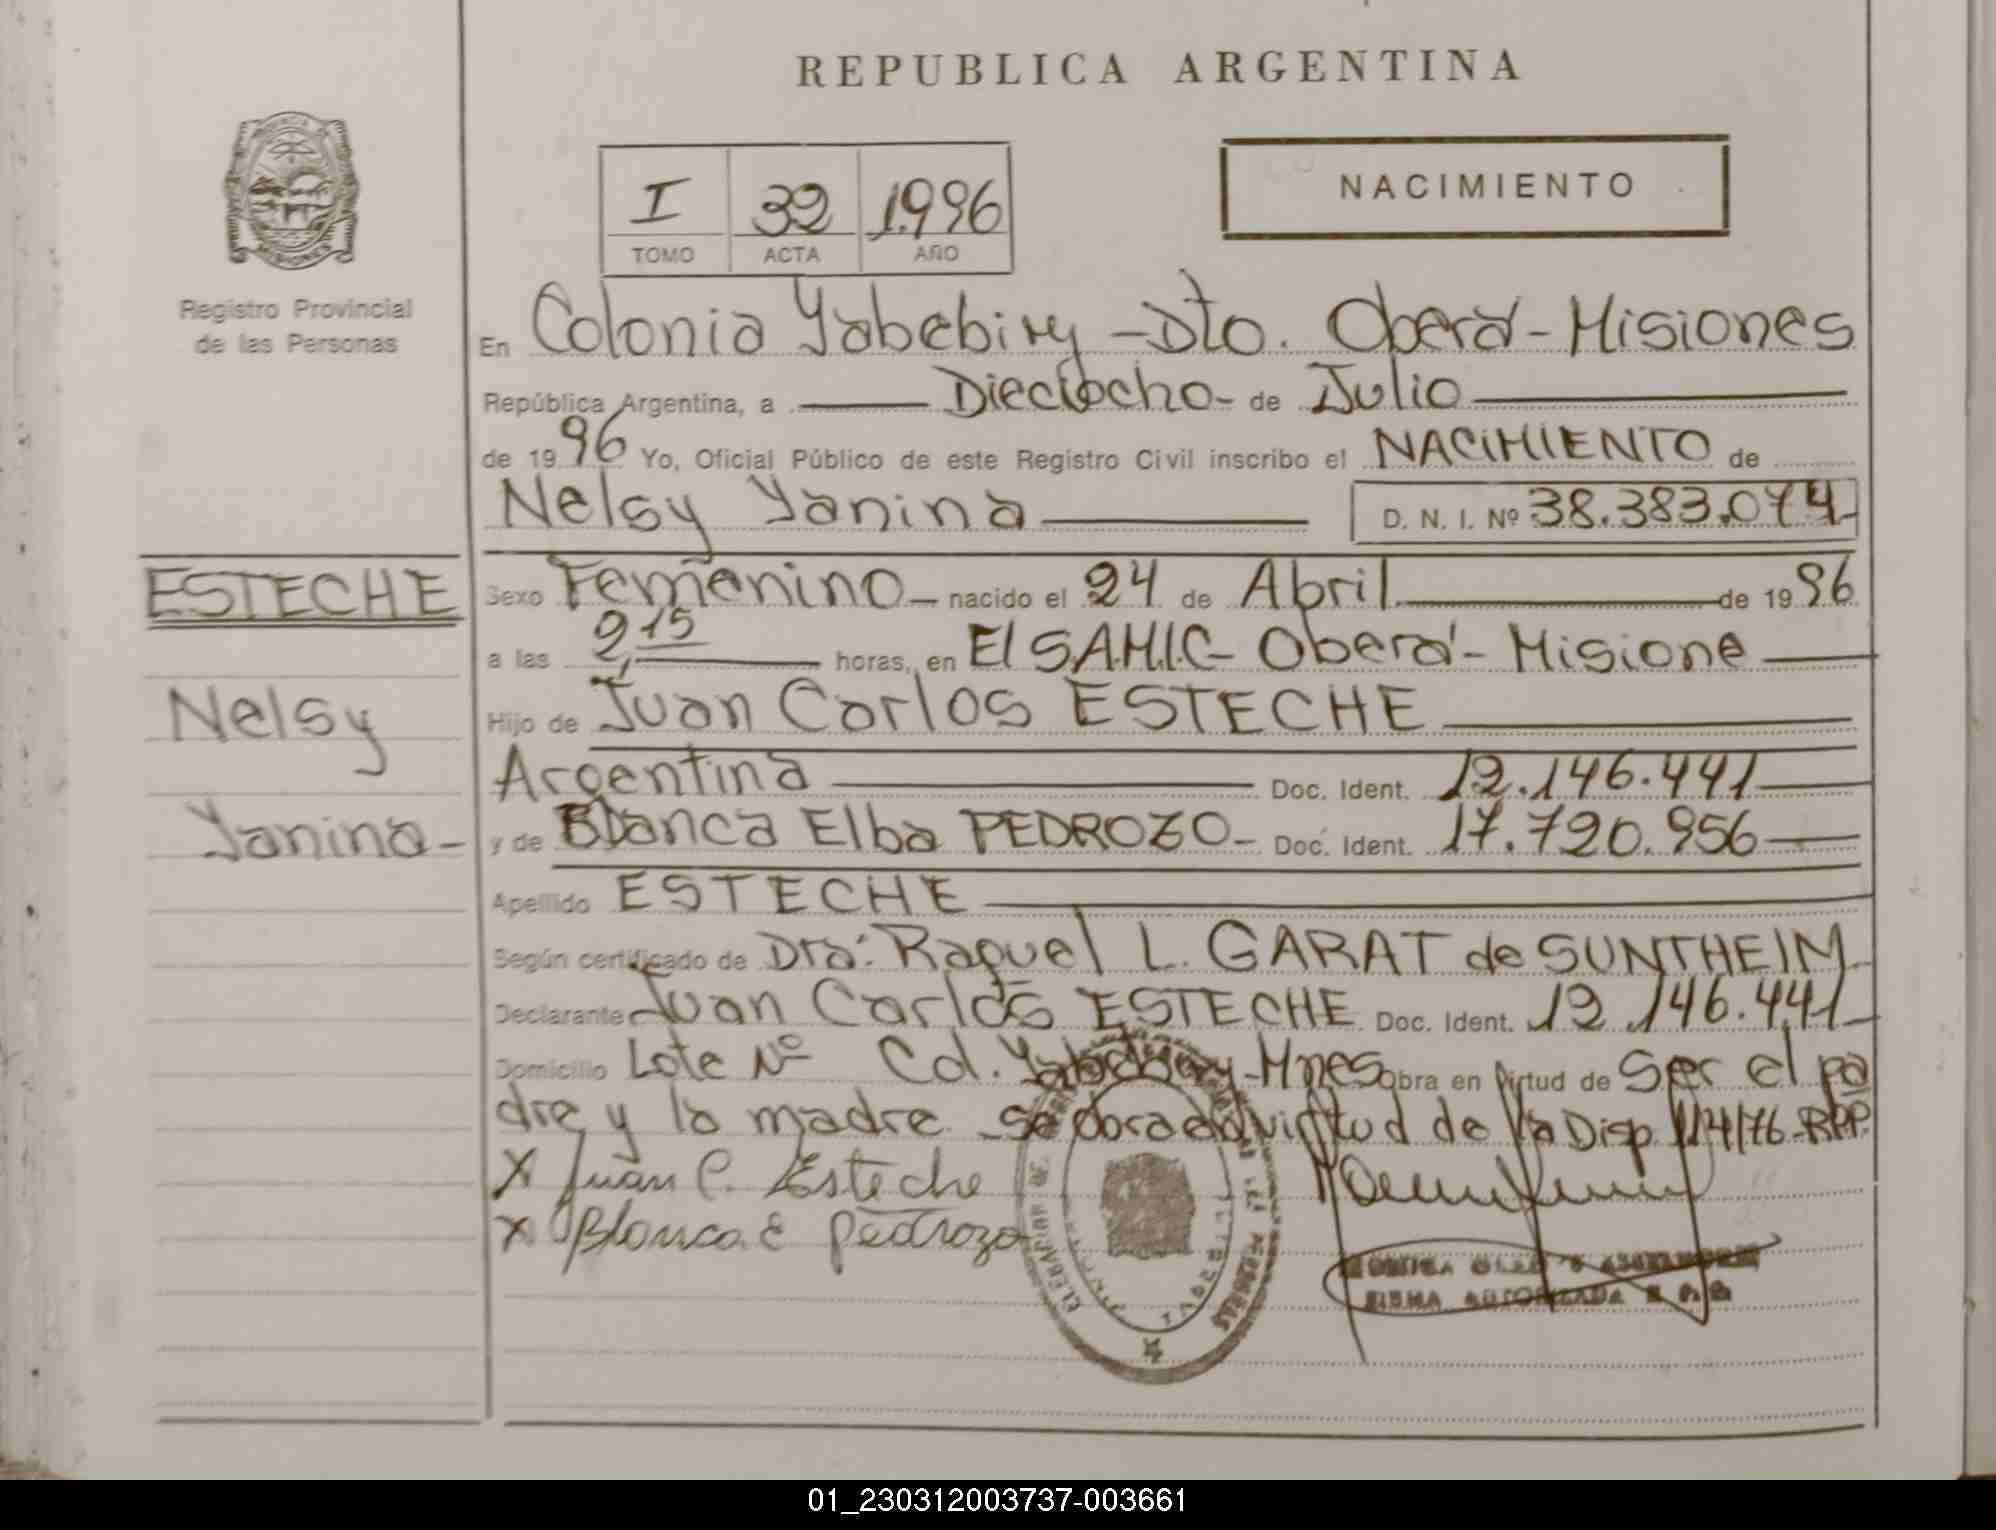 REPUBLICA ARGENTINA
NACIMIENTO
I 32 1.996
TOMO ACTA AÑO
Registro Provincial
de las Personas
En Colonia Yabebiry - Dto. Oberá - Misiones
República Argentina, a Dieciocho - de Julio
de 19 96 Yo, Oficial Público de este Registro Civil inscribo el NACIMIENTO de
Nelsy Yanina D. N. I. Nº 38.383.074
ESTECHE
Nelsy
Yanina-
Sexo Femenino nacido el 24 de Abril de 19 96
a las 2,15 horas, en El S.A.M.I.C- Oberá - Misione
Hijo de Juan Carlos ESTECHE
Argentina Doc. Ident. 12.146.441
y de Blanca Elba PEDROZO- Doc. Ident. 17.720.956
Apellido ESTECHE
Según certificado de Dra: Raquel L. GARAT de SUNTHEIM
Declarante Juan Carlos ESTECHE Doc. Ident. 12.146.441
Domicilio Lote Nº Col. Yabebiry-Mnes Obra en virtud de Ser el pa
dre y la madre se obra en virtud de la Disp. 114/76-RPP.
X Juan C. Esteche
X Blanca E Pedrozo
FIRMA AUTORIZADA
01_230312003737-003661